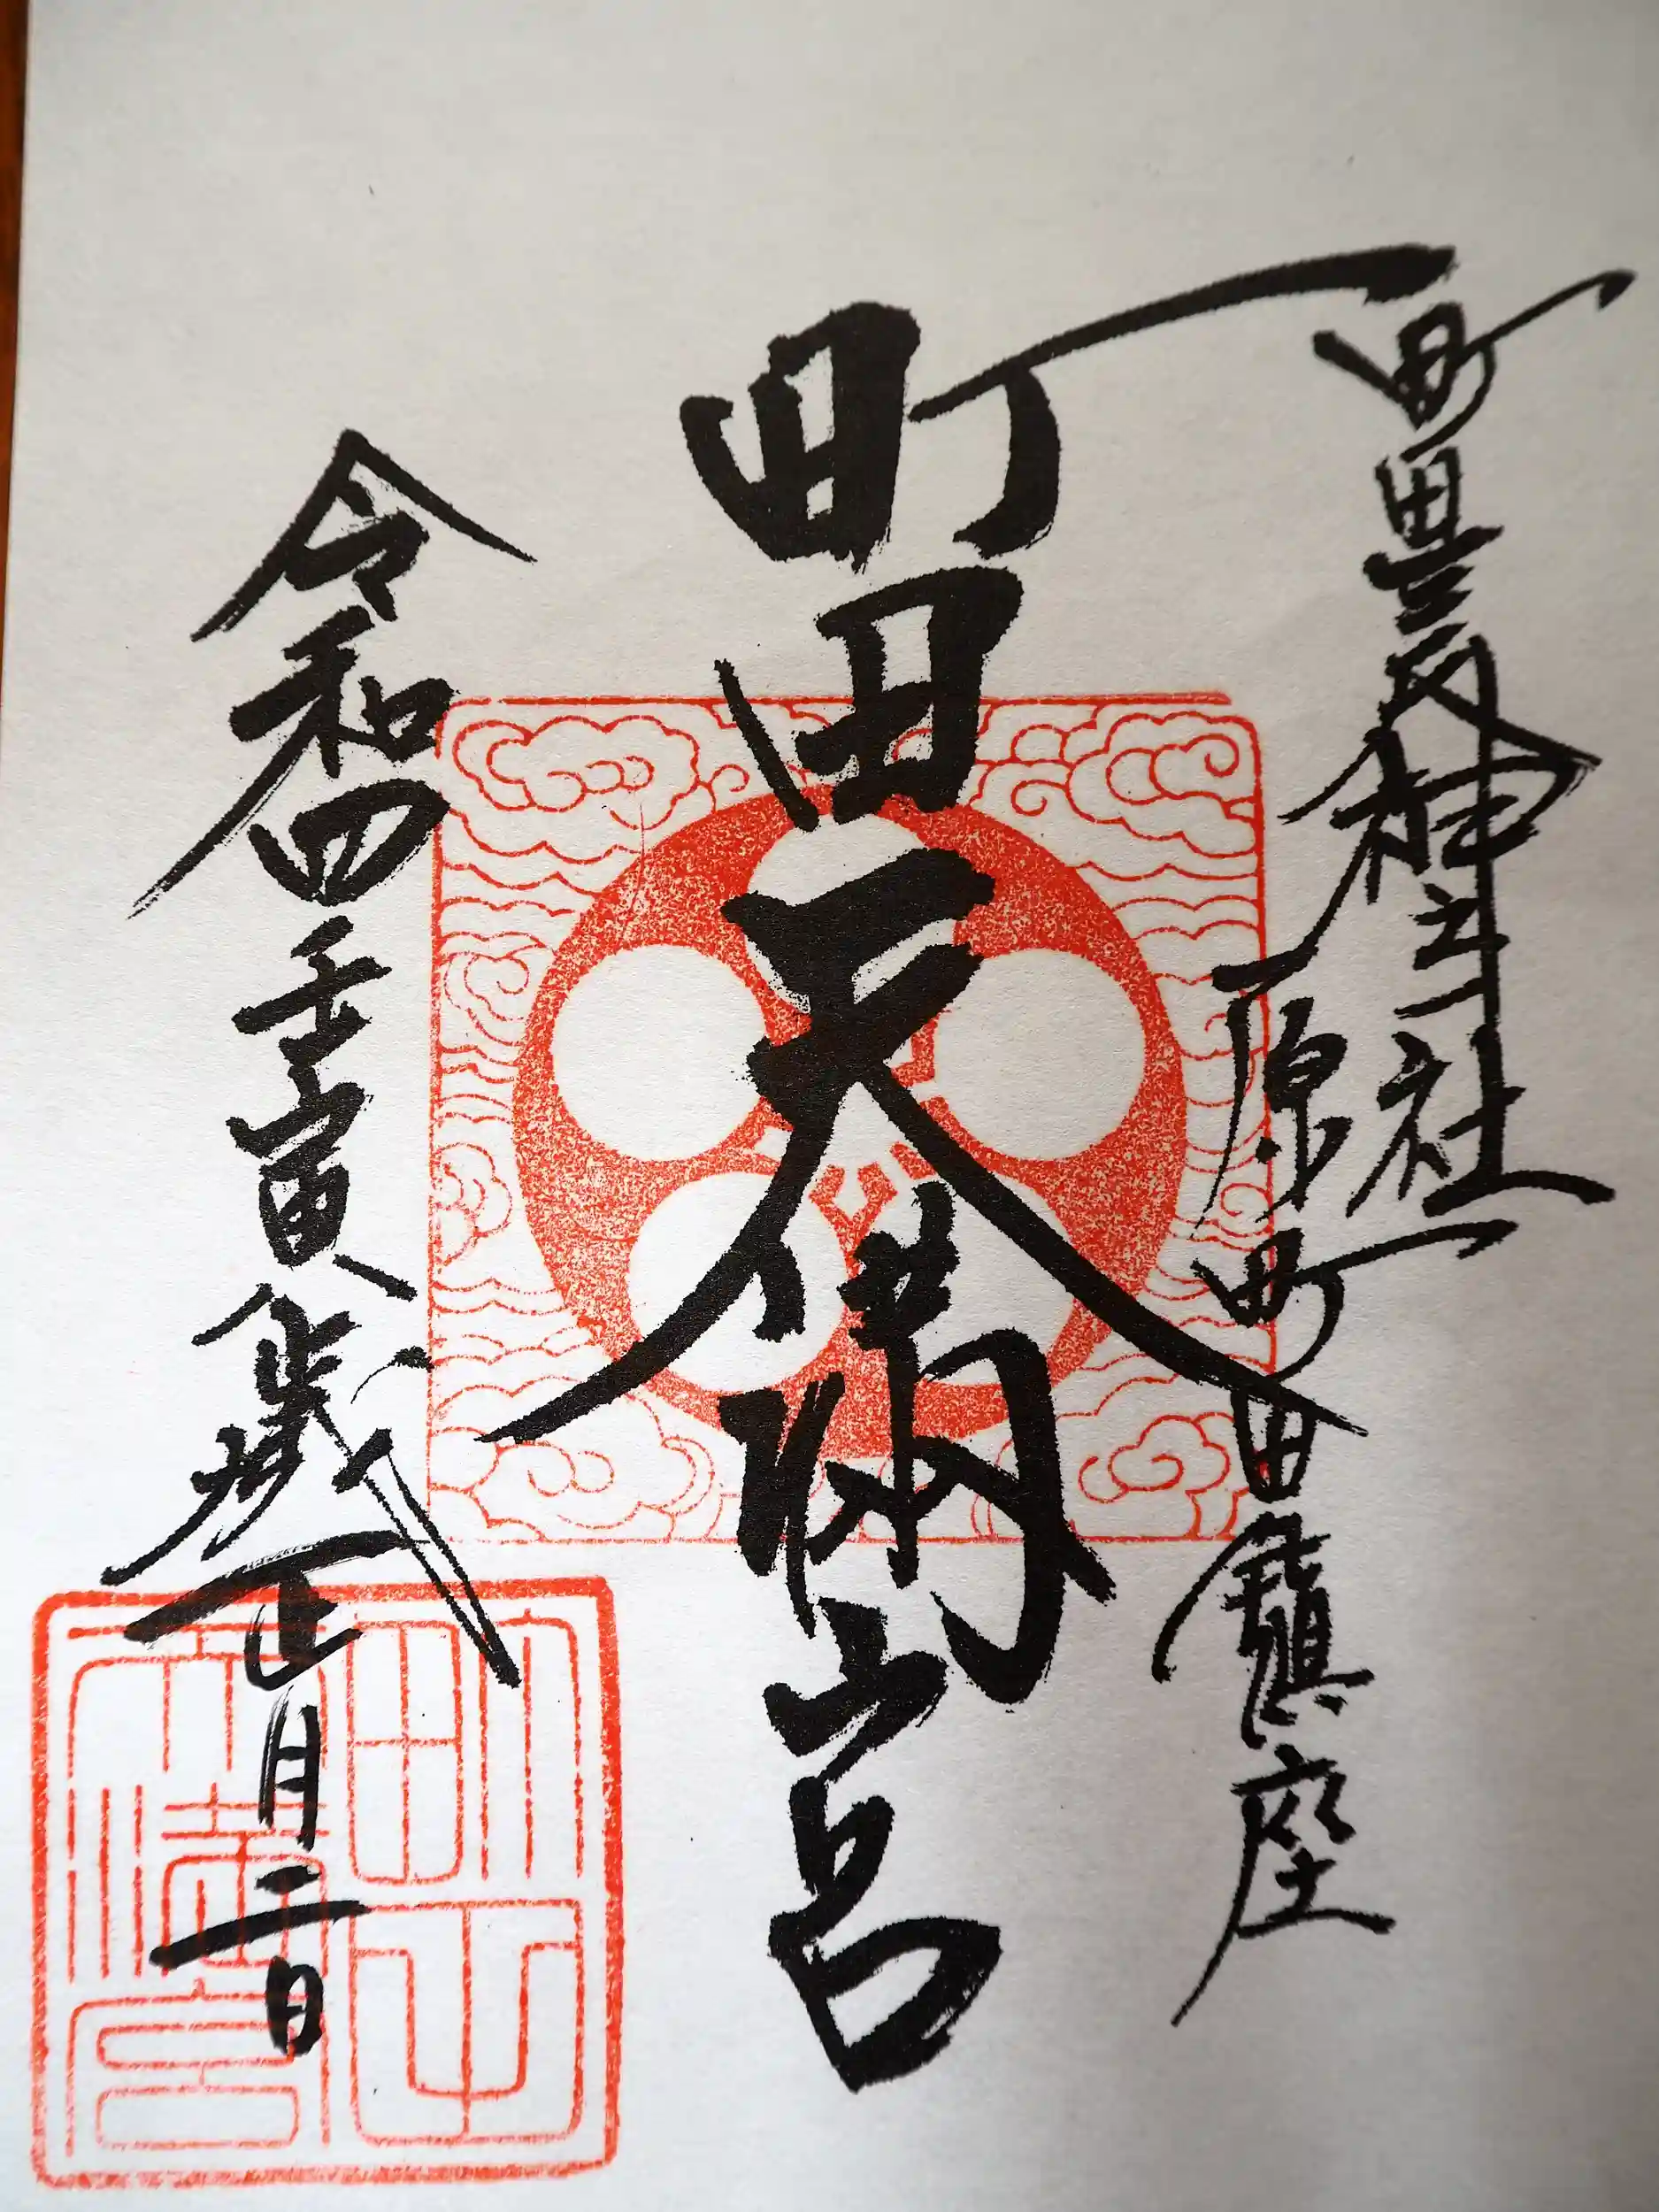 町田
神
社
原町田鎮座
町田天満宮
令和四壬寅歳正月二日
町田
天満宮